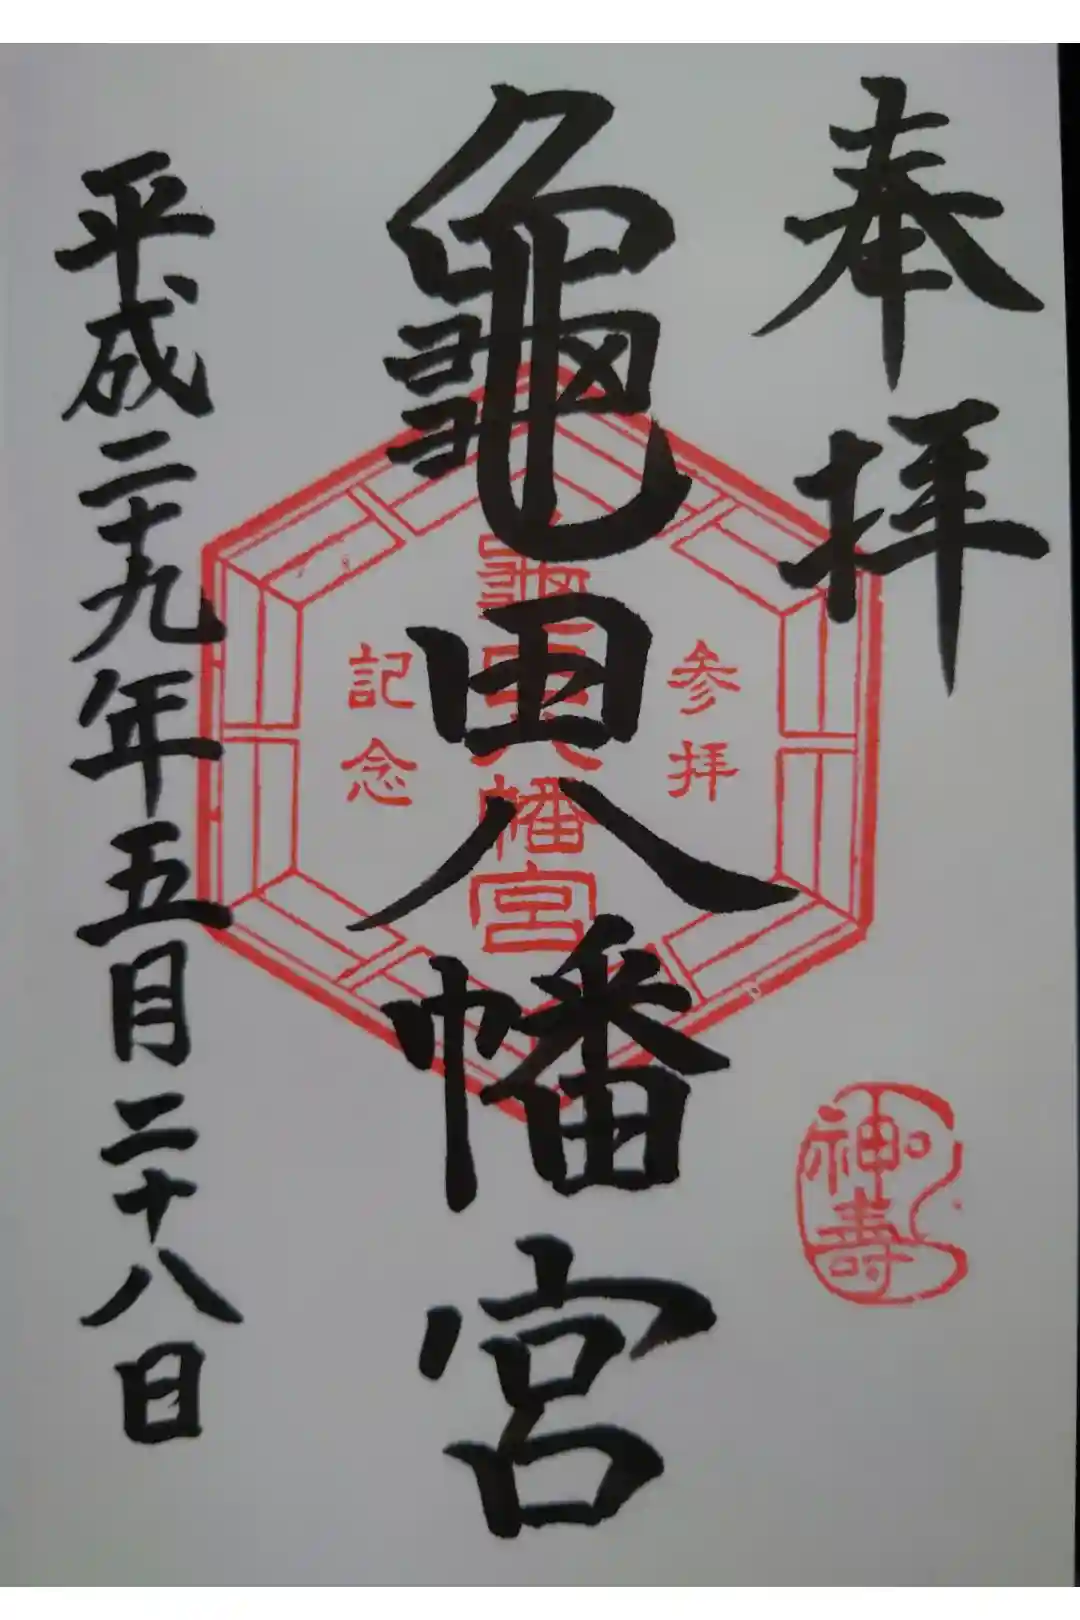 奉拝
参拝
神壽
龜田八幡宮
龜田八幡宮
記念
平成二十九年五月二十八日